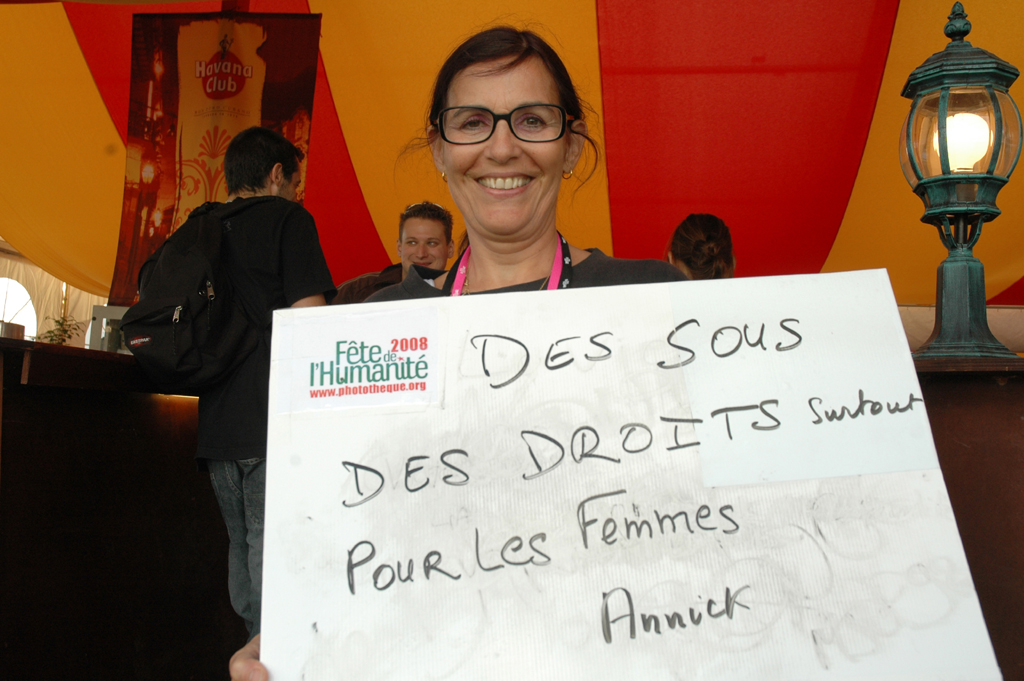 Havana
Club
Fête 2008
de
l'Humanité
www.phototheque.org
DES SOUS
DES DROITS surtout
POUR Les Femmes
Annick